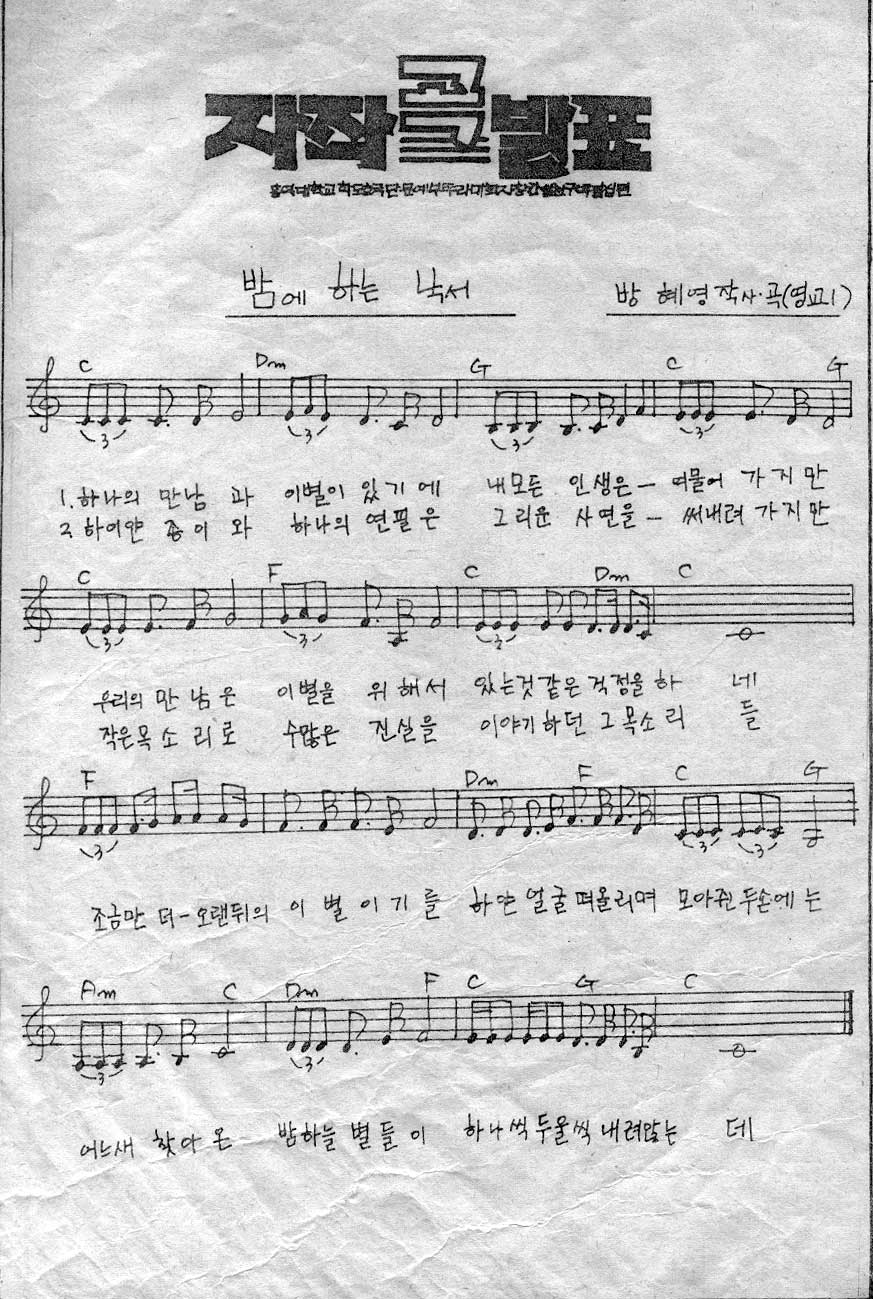 자작곡발표
밤에 하는 낙서
방 혜영 작사·곡(영교1)
C Dm G C G
3 3 3 3
1. 하나의 만남 과 이별이 있기에 내모든 인생은- 여물어 가지만
2. 하이얀 종이 와 하나의 연필은 그리운 사연을- 써내려 가지만
C F C Dm C
3 3 3
우리의 만남은 이별을 위해서 있는것 같은 걱정을 하 네
작은목소리로 수많은 진실을 이야기하던 그 목소리 들
F Dm F C G
3 3 3
조금만 더-오랜뒤의 이별이기를 하얀 얼굴 떠올리며 모아쥔 두손에는
Am C Dm F C G C
3 3
어느새 찾아온 밤하늘 별들이 하나씩 두울씩 내려앉는 데